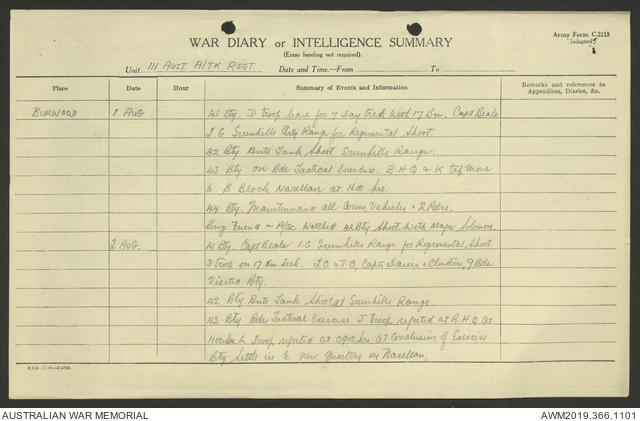 WAR DIARY or INTELLIGENCE SUMMARY
(Erase heading not required).
Army Form C.2118
(adapted)
Unit 111 AUST A/TK REGT. Date and Time.—From To
Place Date Hour Summary of Events and Information Remarks and references to Appendices, Diaries, &c.
BURWOOD 1 AUG 41 Bty. D troop leave for 7 day trek with 17 Bn. Capt Beale
I.G Greenhills Arty Range for Regimental Shoot.
42 Bty Anti Tank Shoot Greenhills Range.
43 Bty on Bde Tactical Exercise. B.H.Q & K trp move
to B Block Narellan at 1600 hrs.
44 Bty. Maintenance all arms, Vehicles & 2 Pdrs.
Brig Friend watched 42 Bty Shoot with Major Solomon.
2 AUG. 41 Bty. Capt Beale I.G. Greenhills Range for Regimental Shoot
D troop on 17 Bn Trek. Capts Davies & 9 Bde
Visited Bty.
42 Bty Anti Tank Shoot at Greenhills Range.
43 Bty Bde Tactical Exercise J troop reported at B.H.Q at
1100 hrs L Troop reported at 0900 hrs at Conclusion of Exercise
Bty Settle in to new quarters at Narellan.
AUSTRALIAN WAR MEMORIAL
AWM2019.366.1101